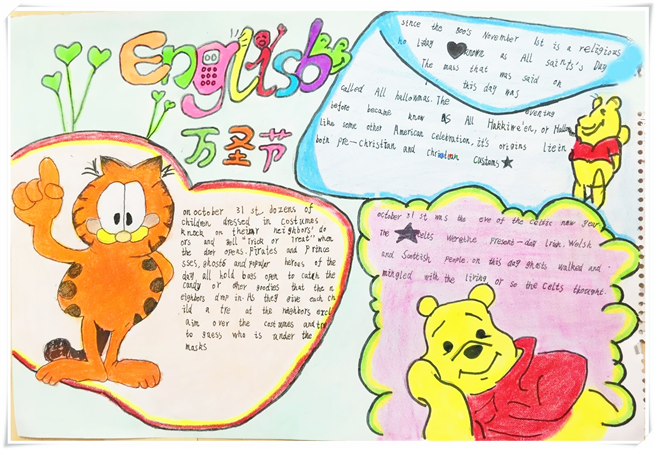 English
万圣节
since the 800's November 1st is a religious
ho liday known as All saints's Day
The mass that was said on
this day was
called All hallowmas. The evening
before became know as All Hakkime'en, or Hallo
like some other American Celebration, it's origins lie in
both pre-Christian and christian customs
on october 31 st dozens of
children dressed in costumes
knock on their neighbors' do
ors and yell "Trick or Treat" when
the door opens. Pirates and prince
sses, ghosts and popular heroes of the
day all hold bags open to catch the
candy or other goodies that the n
eighbors drop in. As they give each ch
ild a tre at the neighbors excl
aim over the costumes and try
to guess who is under the
masks
october 31 st was the eve of the Celts new year.
The celts were the present-day Irish. Welsh
and Scottish people. on this day ghosts walked and
mingled with the living or so the Celts thought.